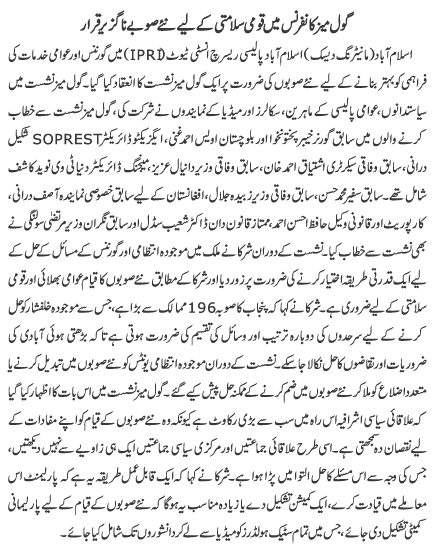 گول میز کانفرنس میں قومی سلامتی کے لیے نئے صوبے ناگزیر قرار
اسلام آباد (مانیٹرنگ ڈیسک) اسلام آباد پالیسی ریسرچ انسٹی ٹیوٹ (IPRI) میں گورننس اور عوامی خدمات کی
فراہمی کو بہتر بنانے کے لیے نئے صوبوں کی ضرورت پر ایک گول میز نشست کا انعقاد کیا گیا۔ گول میز نشست میں
سیاستدانوں، عوامی پالیسی کے ماہرین، سکالرز اور میڈیا کے نمائندوں نے شرکت کی، گول میز نشست سے خطاب
کرنے والوں میں سابق گورنر خیبر پختونخوا اور بلوچستان اویس احمد غنی، ایگزیکٹو ڈائریکٹر SOPREST شکیل
درانی، سابق وفاقی سیکرٹری اشتیاق احمد خان، سابق وفاقی وزیر دانیال عزیز، مینجنگ ڈائریکٹر دنیا ٹی وی نوید کاشف
شامل تھے۔ سابق سفیر محمد حسن، سابق وفاقی وزیر زبیدہ جلال، افغانستان کے لیے سابق خصوصی نمائندہ آصف درانی،
کارپوریٹ اور قانونی وکیل حافظ احسن احمد، ممتاز قانون دان ڈاکٹر شعیب سڈل اور سابق نگران وزیر مرتضیٰ سولنگی نے
بھی نشست سے خطاب کیا۔ نشست کے دوران شرکا نے ملک میں موجودہ انتظامی اور گورننس کے مسائل کے حل کے
لیے ایک قدرتی طریقہ اختیار کرنے کی ضرورت پر زور دیا اور شرکا کے مطابق نئے صوبوں کا قیام عوامی بھلائی اور قومی
سلامتی کے لیے ضروری ہے۔ شرکا نے کہا کہ پنجاب کا صوبہ 196 ممالک سے بڑا ہے، جس سے موجودہ خلفشار کو حل
کرنے کے لیے سرحدوں کی دوبارہ ترتیب اور وسائل کی تقسیم کی ضرورت ہوتی ہے تاکہ بڑھتی ہوئی آبادی کی
ضروریات اور تقاضوں کا حل نکالا جا سکے۔ نشست کے دوران موجودہ انتظامی یونٹس کو نئے صوبوں میں تبدیل کرنے یا
متعدد اضلاع کو ملا کر نئے صوبوں میں ضم کرنے کے ممکنہ حل پیش کیے گئے۔ گول میز نشست میں اس بات کا اظہار کیا گیا
کہ علاقائی سیاسی اشرافیہ اس راہ میں سب سے بڑی رکاوٹ ہے کیونکہ وہ نئے صوبوں کے قیام کو اپنے مفادات کے
لیے نقصان دہ سمجھتی ہے۔ اسی طرح علاقائی جماعتیں اور مرکزی سیاسی جماعتیں ایک ہی زاویے سے نہیں دیکھتیں،
جس کی وجہ سے اس مسئلے کا حل التوا میں پڑا ہوا ہے۔ شرکا نے کہا کہ ایک قابل عمل طریقہ یہ ہے کہ پارلیمنٹ اس
معاملے میں قیادت کرے، ایک کمیشن تشکیل دے یا زیادہ مناسب یہ ہوگا کہ نئے صوبوں کے قیام کے لیے پارلیمانی
کمیٹی تشکیل دی جائے، جس میں تمام سٹیک ہولڈرز کو میڈیا سے لے کر دانشوروں تک شامل کیا جائے۔